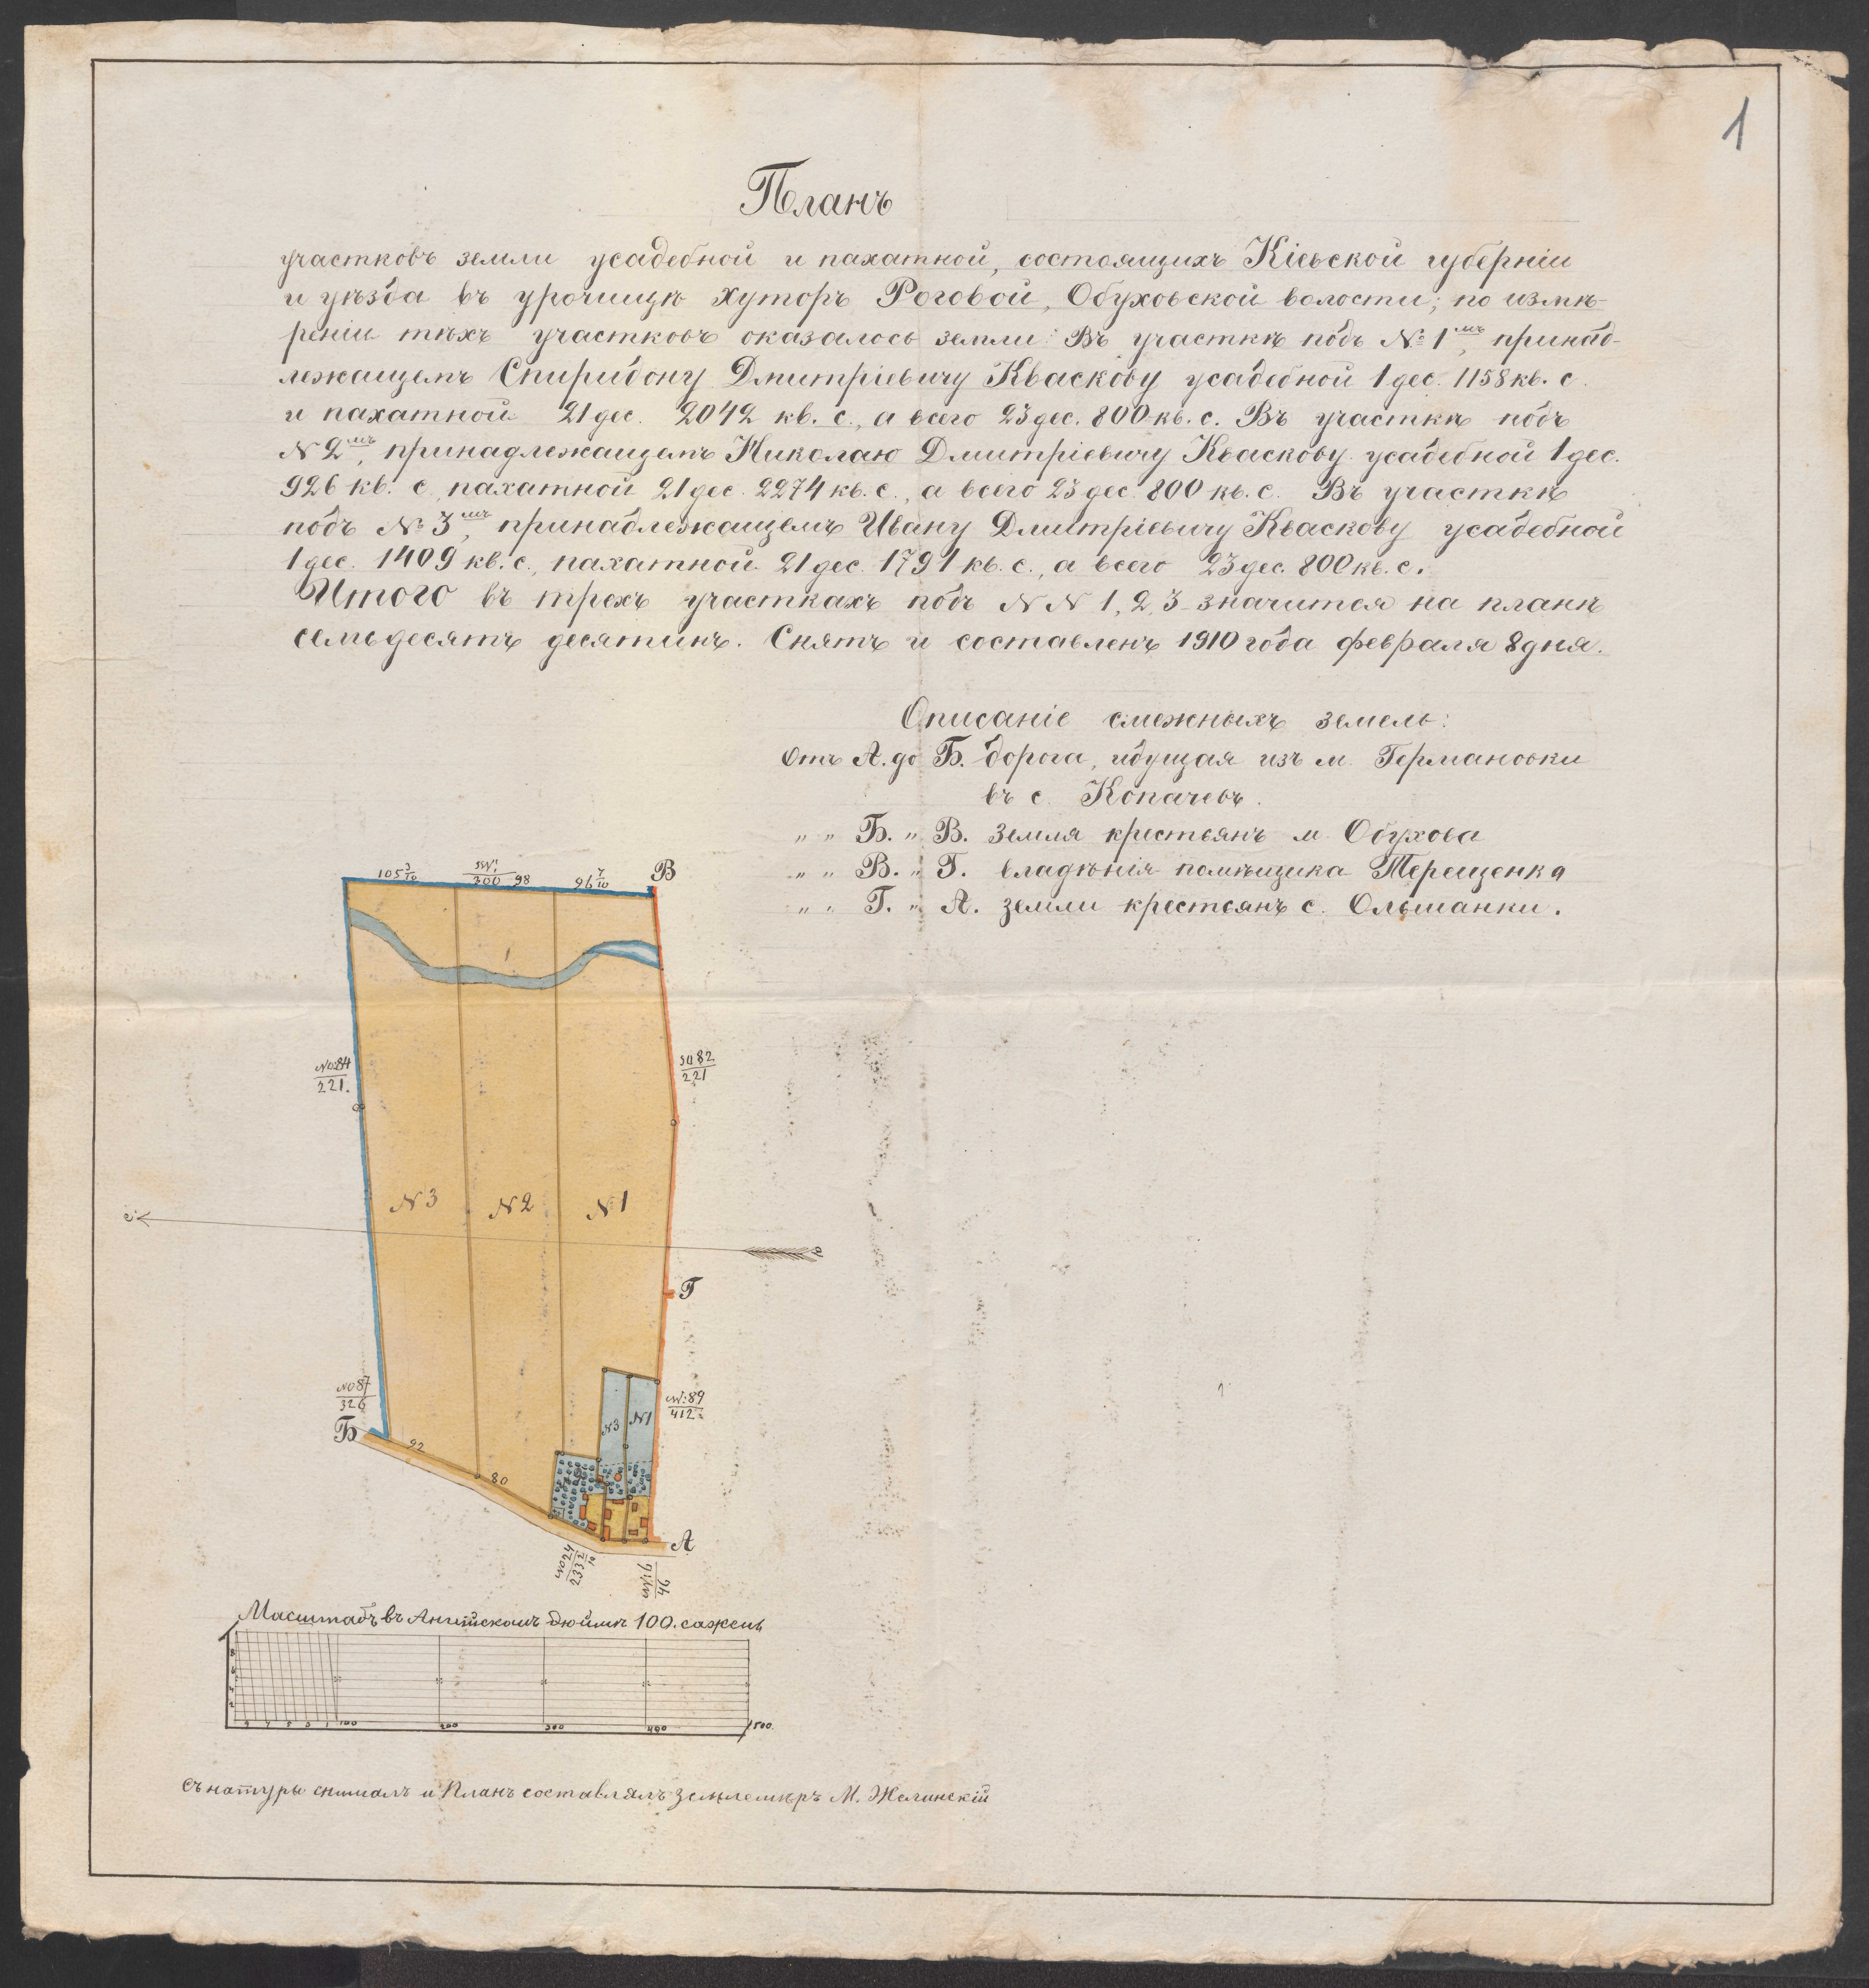 1
Планъ
участковъ земли усадебной и пахатной, состоящихъ Кіевской губерніи
и уѣзда въ урочищѣ хуторъ Роговой, Обуховской волости; по измѣ-
реніи тѣхъ участковъ оказалось земли: Въ участкѣ подъ № 1мъ, принад-
лежащемъ Спиридону Дмитріевичу Кваскову усадебной 1 дес. 1158 кв. с.
и пахатной 21 дес. 2042 кв. с., а всего 23 дес. 800 кв. с. Въ участкѣ подъ
N 2мъ, принадлежащемъ Николаю Дмитріевичу Кваскову усадебной 1 дес.
926 кв. с. пахатной 21 дес. 2274 кв. с., а всего 23 дес. 800 кв. с. Въ участкѣ
подъ № 3мъ, принадлежащемъ Ивану Дмитріевичу Кваскову усадебной
1 дес. 1409 кв. с., пахатной 21 дес. 1791 кв. с., а всего 23 дес. 800 кв. с.
Итого въ трехъ участкахъ подъ N N 1, 2, 3 значится на планѣ
семьдесятъ десятинъ. Снятъ и составленъ 1910 года февраля 8 дня.
Описаніе смежныхъ земель:
Отъ А. до Б. дорога, идущая изъ м. Германовки
въ с. Копачевъ.
„ „ Б. „ В. земля крестьянъ м. Обухова
„ „ В. „ Г. владѣнія помѣщика Терещенка
„ „ Г. „ А. земли крестьянъ с. Ольшанки.
105 3/10
300 98
96 7/10
В
1
NO84
221.
SO82
221
N 3
N 2
N 1
с
Г
NO87
326
Б
92
80
N 3
N 1
89
412
А
NO24
233 2/10
94
Масштабъ въ Англійскомъ дюймѣ 100. сажень
8
6
4
2
9 7 5 3 1 100 200 300 400 500.
Съ натуры снималъ и планъ составлялъ землемѣръ М. Желинскій